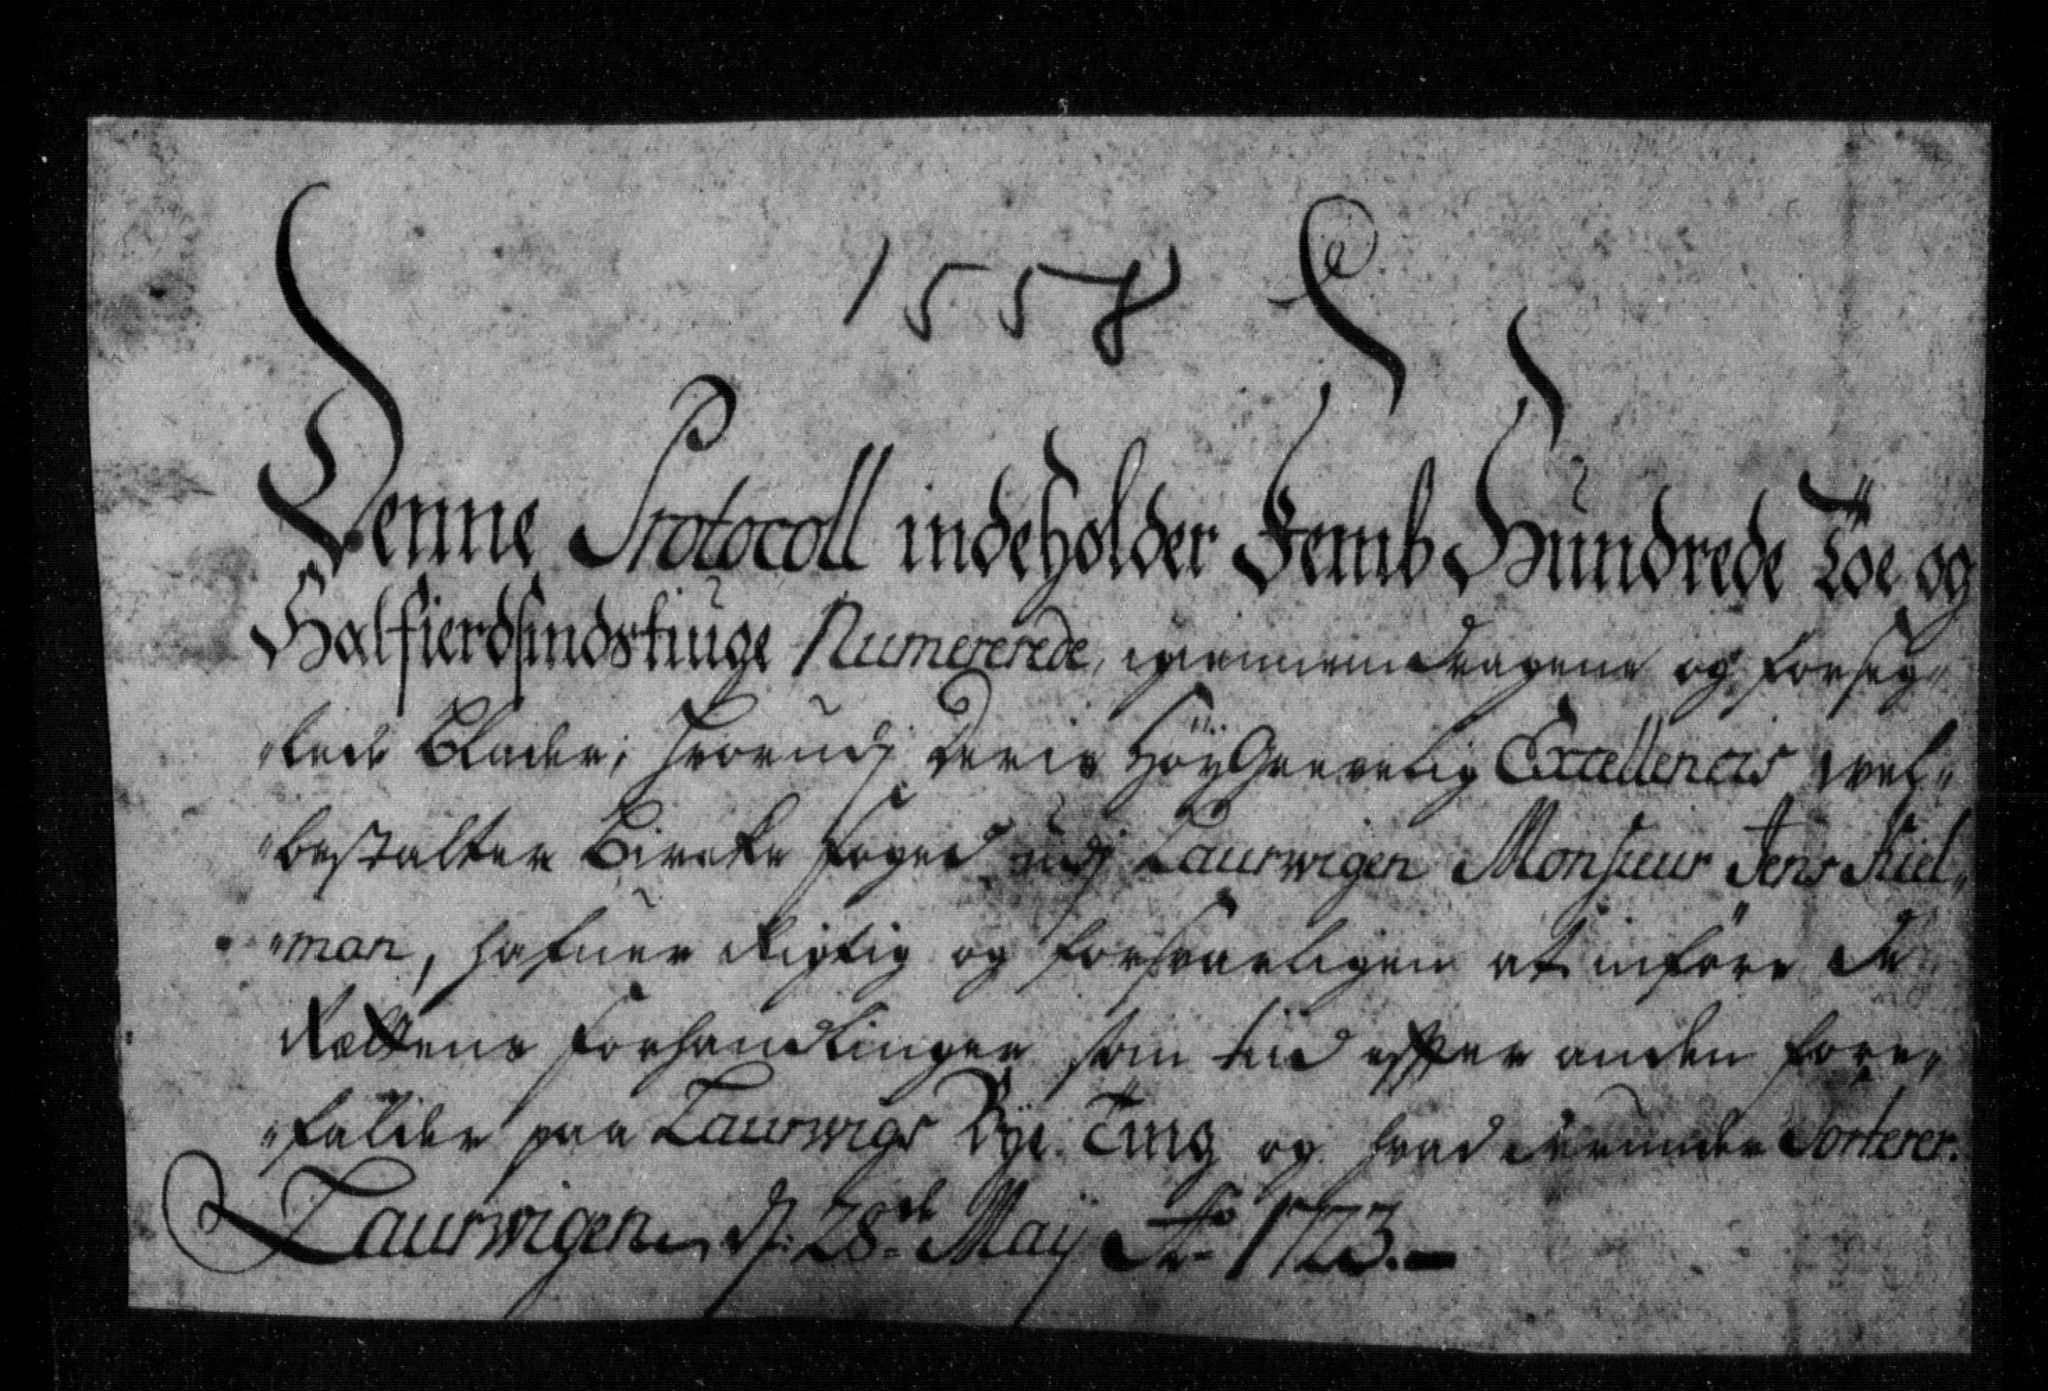 1558
Denne Protocoll indeholder Femb Hundrede Toe og
Halfierdsindstiuge Numererede, igiennemdragene og forseg-
"lede Blader, hvorudj Deris HöyGrevelig Excellencis vel-
"bestalter Bircke foged udj Laurwigen Monsieur Jens Kiel-
"man, hafuer Rigtig og forsvarligen at införe de
Rættens forhandlinger som tid effter anden fore-
"falder paa Laurwigs Bye Ting og hvad derunder Sorterer.
Laurwigen d: 28de Maij Ao 1723.-